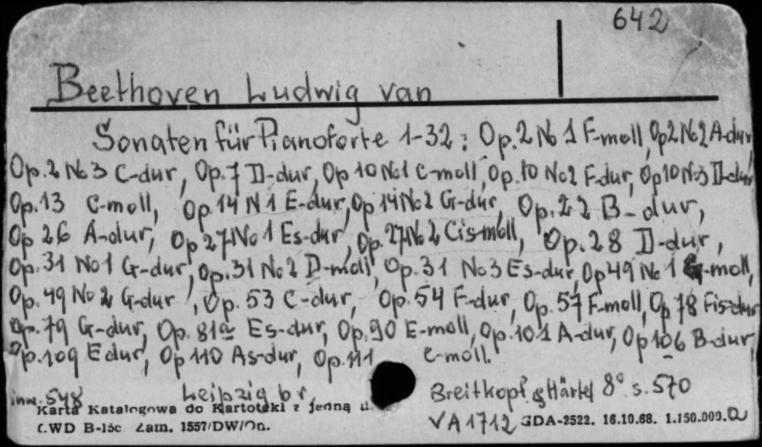 642
Beethoven Ludwig van
Sonaten für Pianoforte 1-32: Op.2 No 1 F-moll, Op2 No2 A-dur,
Op.2 No3 C-dur, Op.7 D-dur, Op 10 No1 c-moll, Op.10 No2 F-dur, Op10 No3 D-dur
Op.13 c-moll, Op.14 N1 E-dur, Op 14 No2 G-dur, Op.22 B-dur,
Op 26 A-dur, Op 27 No 1 Es-dur, Op.27 No 2 Cis-moll, Op.28 D-dur,
Op.31 No1 G-dur, Op.31 No2 D-moll, Op.31 No3 Es-dur, Op49 No 1 G-moll,
Op.49 No 2 G-dur, Op. 53 C-dur, Op.54 F-dur, Op.57 F-moll, Op 78 Fis-dur
Op.79 G-dur, Op.81a Es-dur, Op.90 E-moll, Op.101 A-dur, Op 106 B-dur,
Op.109 Edur, Op 110 As-dur, Op.111 c-moll.
inw. 548 Leipzig br. Breitkopf & Härtel 8° s.570
Karta Katalogowa do Kartoteki z jedną
CWD B-15c Zam. 1557/DW/On. VA 1712 GDA-2522. 16.10.68. 1.150.000.